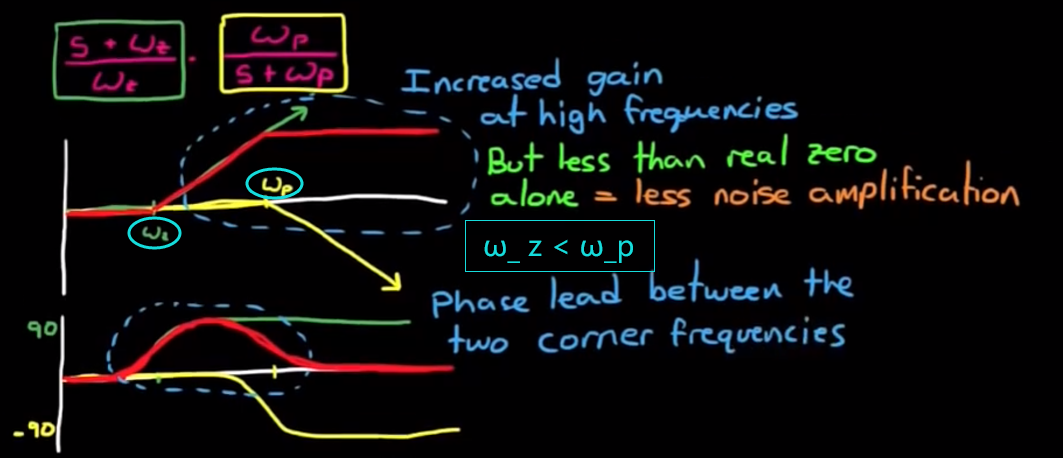 s + ωz / ωz · ωp / s + ωp
Increased gain
at high frequencies
But less than real zero
alone = less noise amplification
ωp
ωz
ω_ z < ω_p
Phase lead between the
two corner frequencies
90
-90